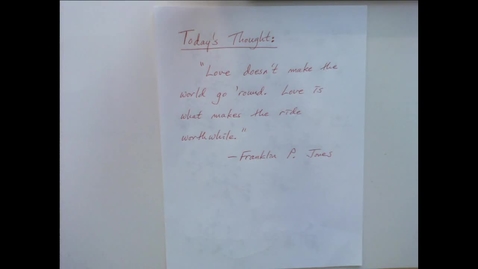 Today's Thought:
"Love doesn't make the
world go 'round. Love is
what makes the ride
worthwhile."
—Franklin P. Jones